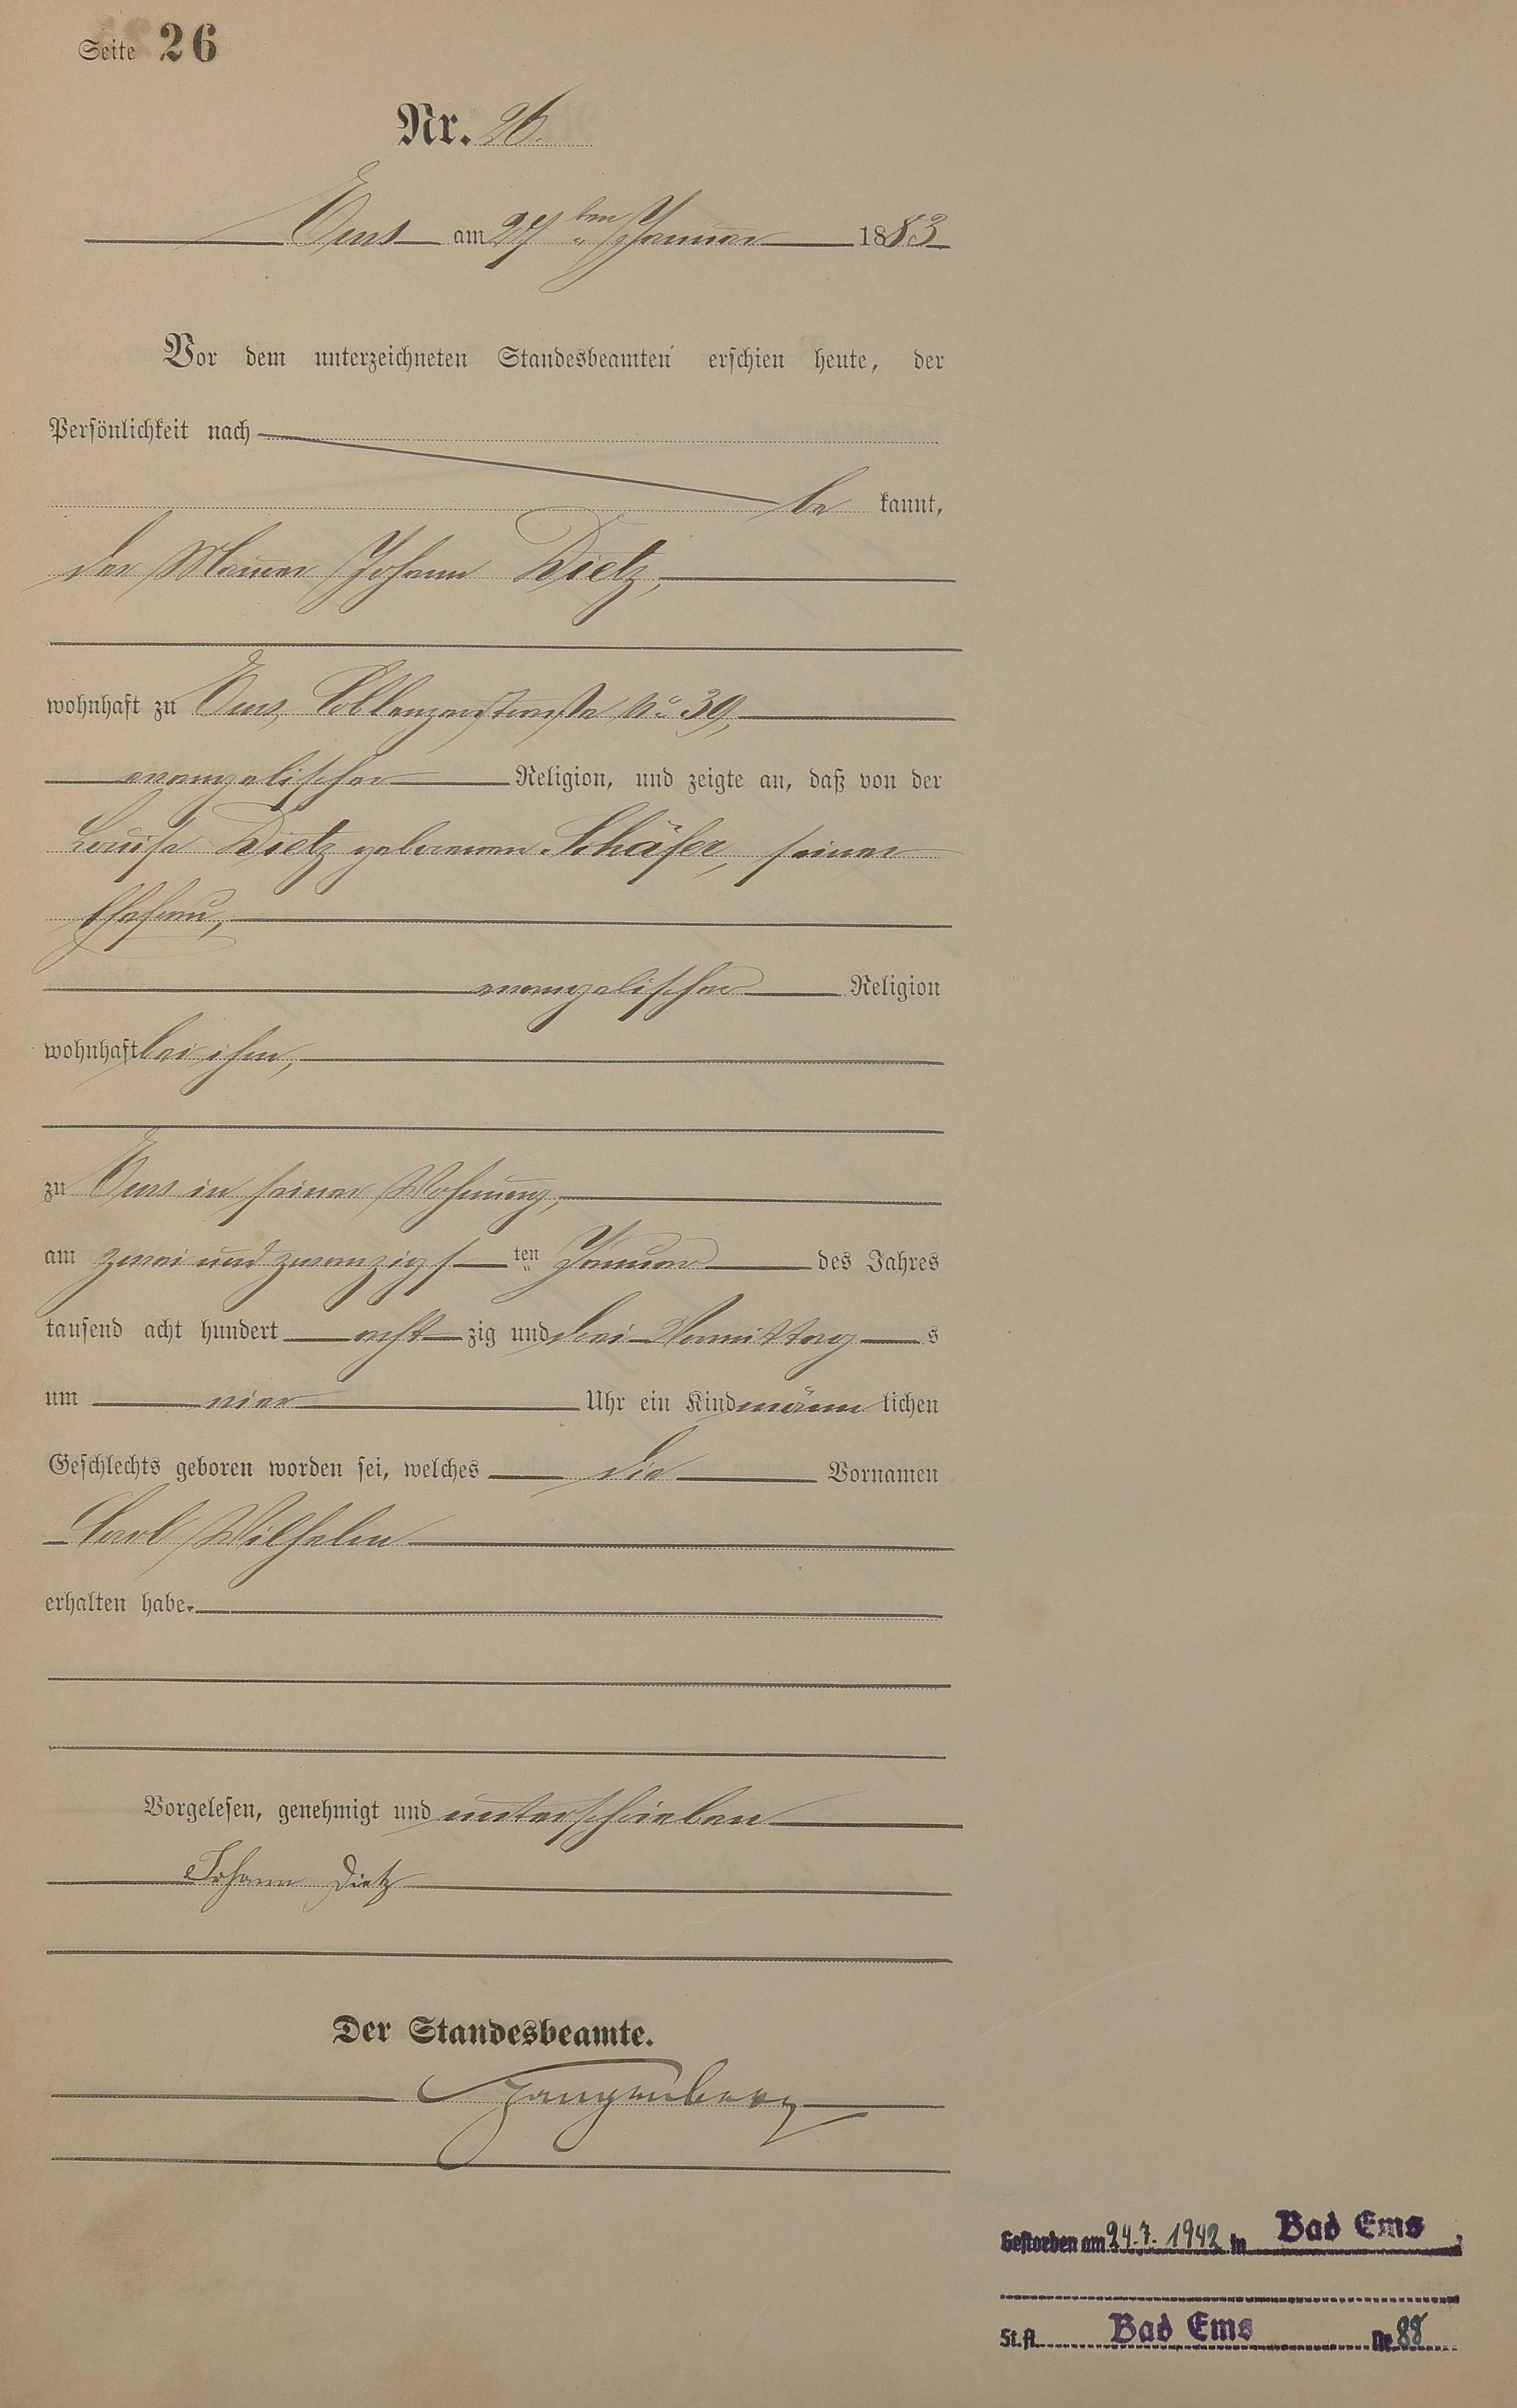 Seite 26
Nr. 26.
Ems am 27ten Januar 1883
Vor dem unterzeichneten Standesbeamten erschien heute, der
Persönlichkeit nach
be kannt,
der Maurer Johann Dietz,
wohnhaft zu Ems, Coblenzerstraße No 39,
evangelischer Religion, und zeigte an, daß von der
Louise Dietz geborenen Schäfer, seiner
Ehefrau,
evangelischer Religion
wohnhaft bei ihm,
zu Ems in seiner Wohnung,
am zwei und zwanzigs ten Januar des Jahres
tausend acht hundert acht zig und drei Vormittag s
um vier Uhr ein Kind männ lichen
Geschlechts geboren worden sei, welches die Vornamen
Carl Wilhelm
erhalten habe.
Vorgelesen, genehmigt und unterschrieben
Johann Dietz
Der Standesbeamte.
Gestorben am 24.7.1942 in Bad Ems
St.A. Bad Ems Nr. 88